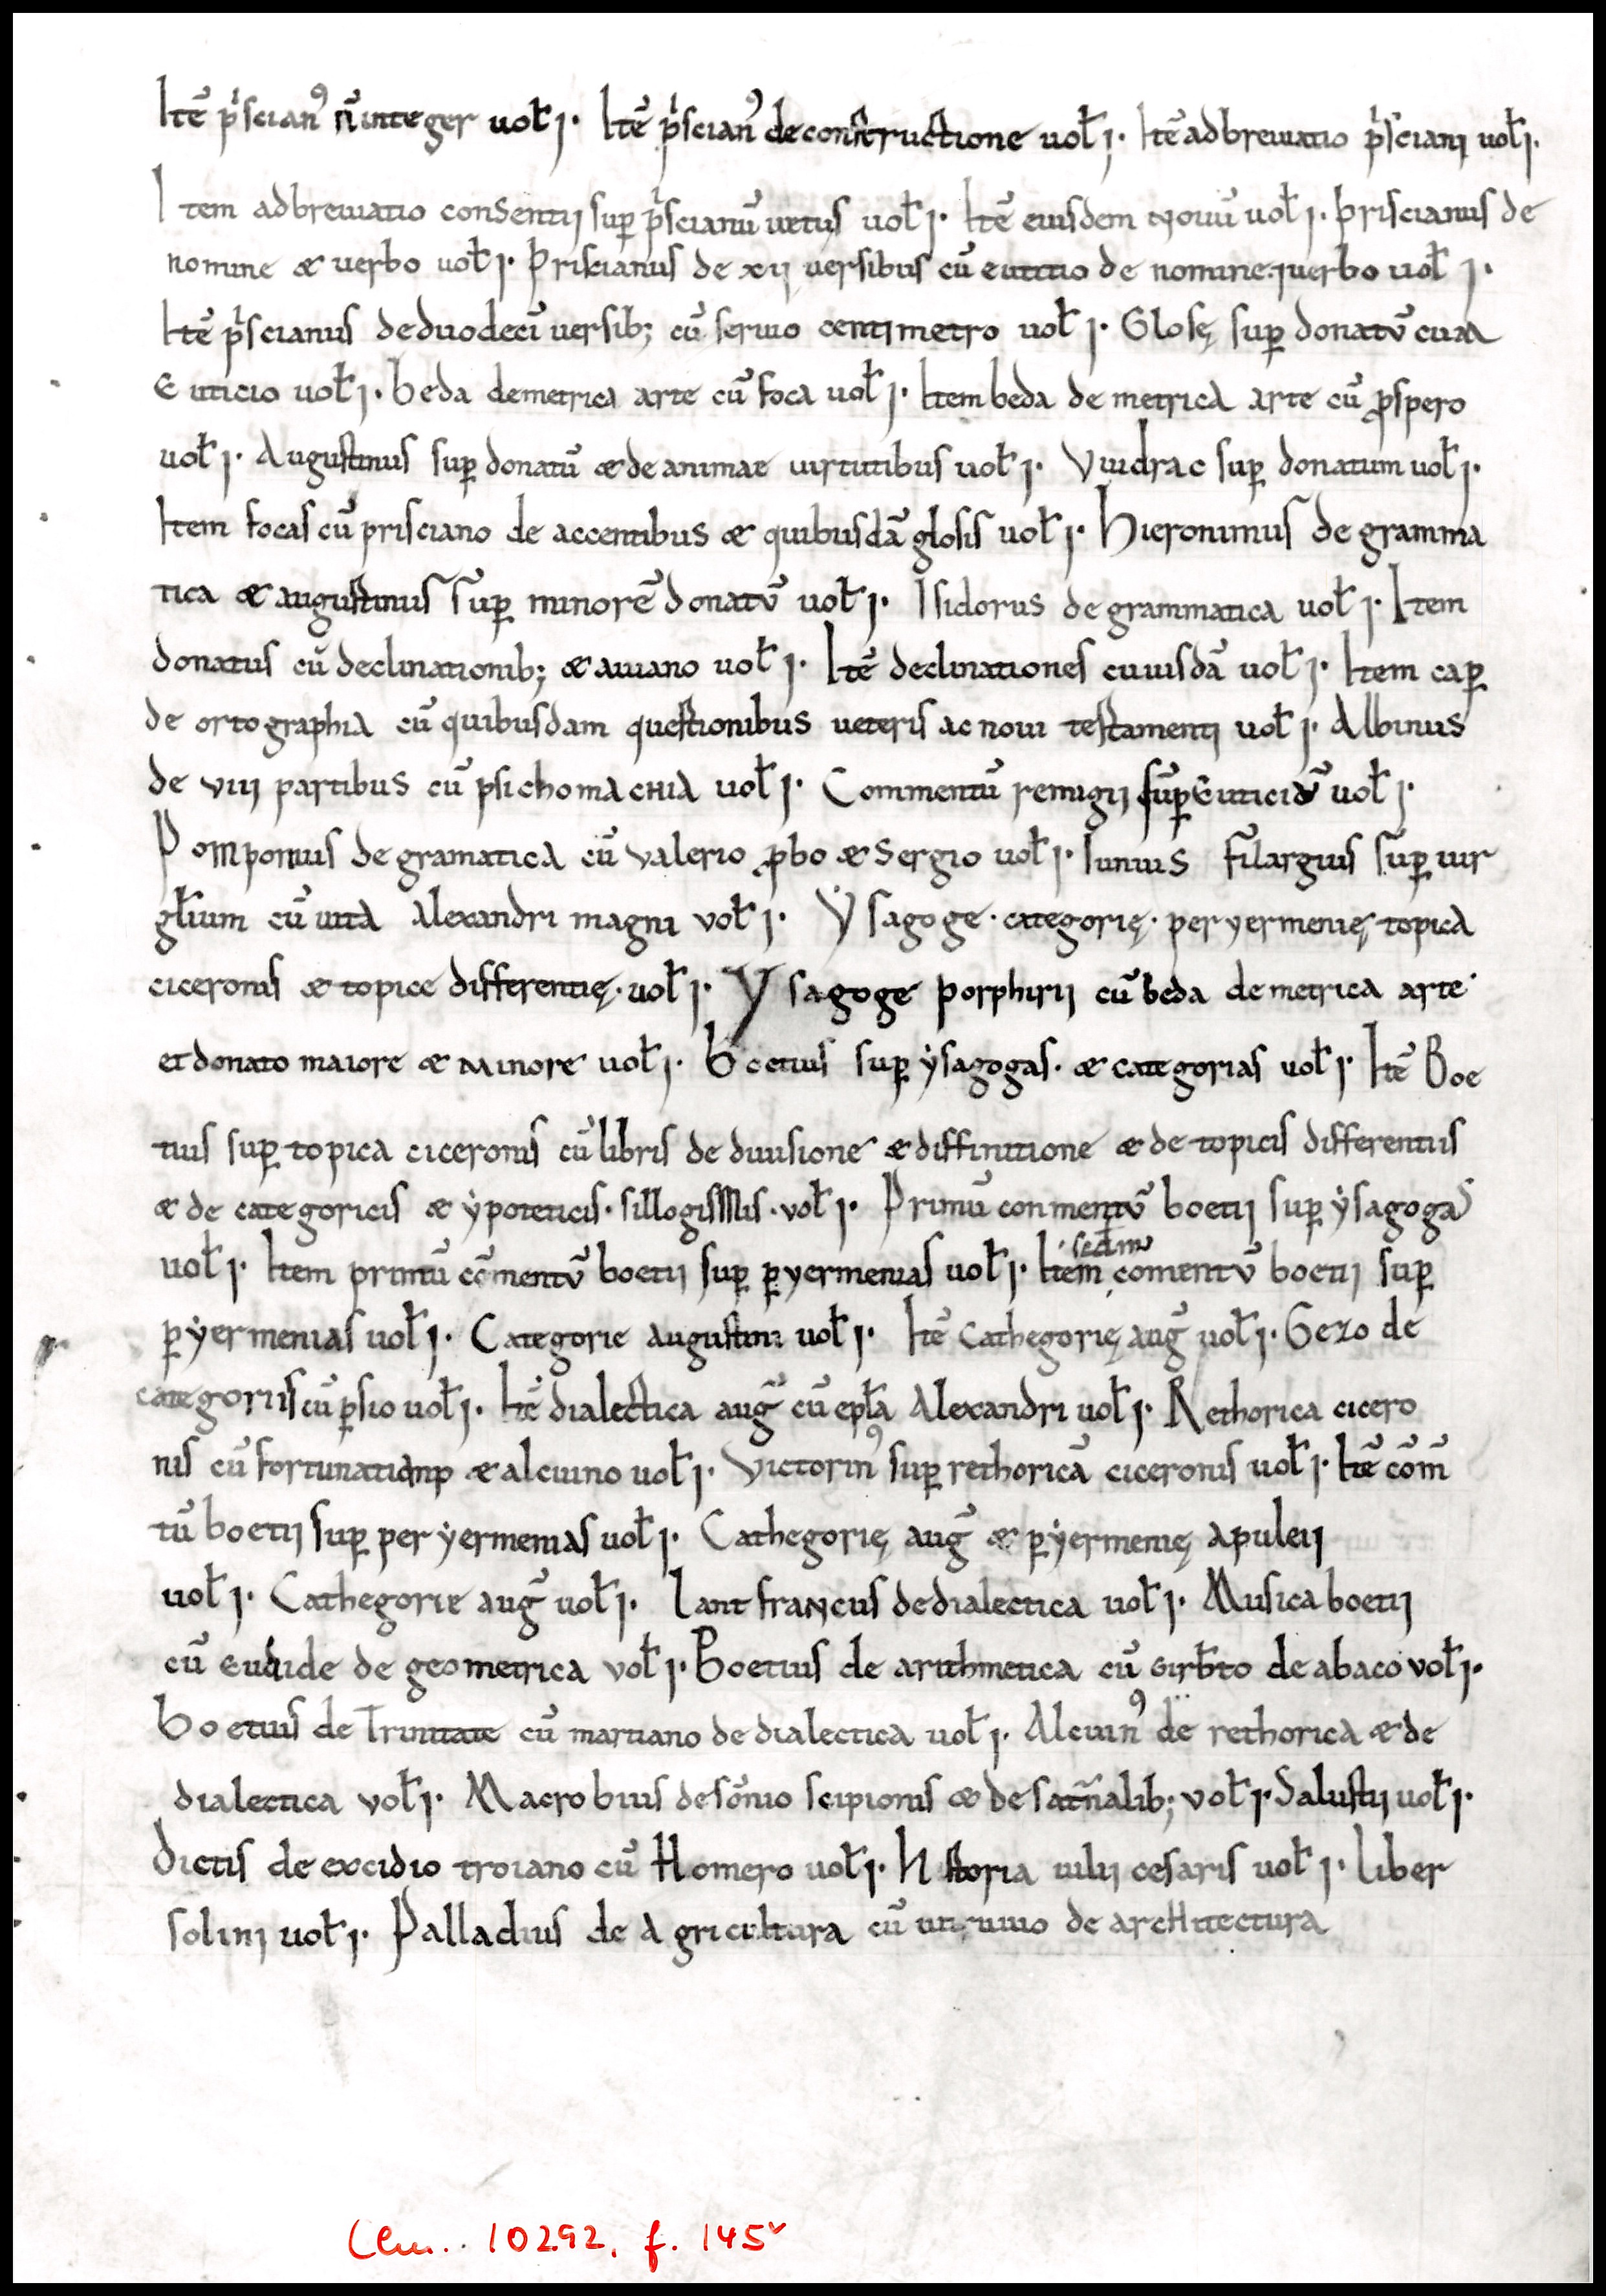 Itē p̍scianꝰ n̄ integer uoł j. Itē p̍scianꝰ de constructione uoł j. Itē adbreuiatio p̍sciani uoł j.
Item adbreuiatio consentij suꝑ p̍scianū uetus uoł j. Itē eiusdem nouū uoł j. Priscianus de
nomine & uerbo uoł j. Priscianus de xij uersibus cū euticio de nomine ⁊ uerbo uoł j.
Itē p̍scianus de duodecī uersib; cū seruio centimetro uoł j. Glosę suꝑ donatū cum
Euticio uoł j. beda de metrica arte cū foca uoł j. Item beda de metrica arte cū ꝓspero
uoł j. Augustinus suꝑ donatū & de animae uirtutibus uoł j. Vuidrac suꝑ donatum uoł j.
Item focas cū prisciano de accentibus & quibusdā glosis uoł j. Hieronimus de gramma
tica & augustinus suꝑ minorē donatū uoł j. Isidorus de grammatica uoł j. Item
donatus cū declinationib; & auiano uoł j. Itē declinationes cuiusdā uoł j. Item caꝑ
de ortographia cū quibusdam questionibus ueteris ac noui testamenti uoł j. Albinus
de viij partibus cū psichomachia uoł j. Commentū remigij suꝑ Euticiū uoł j.
Pomponius de gramatica cū valerio ꝓbo & Sergio uoł j. Iunius filargius suꝑ uir
gilium cū uita Alexandri magni voł j. Ysagoge. categorię. per yermenię. topica
ciceronis & topice differentię. uoł j. Ysagoge porphirij cū beda de metrica arte
et donato maiore & minore uoł j. Boetius suꝑ ẏsagogas. & categorias uoł j. Itē Boe
tius suꝑ topica ciceronis cū libris de diuisione & diffinitione & de topicis differentiis
& de categoricis & ẏpoteticis. sillogismis. voł j. Primū conmentū boetij suꝑ ẏsagogas
uoł j. Item primū cōmentū boetij suꝑ ꝑyermenias uoł j. Item scđm comentū boetij suꝑ
ꝑẏermenias uoł j. Categorie augustini uoł j. Itē cathegorię aug̅ uoł j. Gezo de
categoriis cū ꝑsio uoł j. Itē dialectica aug̅ cū epła Alexandri uoł j. Rethorica cicero
nis cū fortunatiano & alcuino uoł j. Victorinꝰ suꝑ rethoricā ciceronis uoł j. Itē cōm̄
tū boetij suꝑ per ẏermenias uoł j. Cathegorię aug̅ & ꝑẏermenię apuleij
uoł j. Cathegorie aug̅ uoł j. Lantfrancus de dialectica uoł j. Musica boetij
cū euclide de geometrica voł j. Boetius de arithmetica cū girbto de abaco voł j.
Boetius de Trinitate cū martiano de dialectica uoł j. Alcuinꝰ de rethorica & de
dialectica voł j. Macrobius de sōnio scipionis & de satr̄nalib; voł j. Salustij uoł j.
Dictis de excidio troiano cū Homero uoł j. Historia iulij cesaris uoł j. Liber
solini uoł j. Palladius de agricultura cū uitruuio de architectura
Clm. 10292, f. 145ᵛ